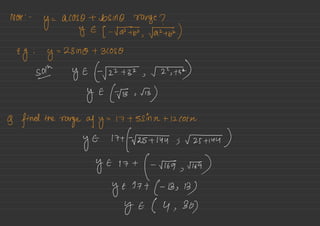 Note:- y = acosθ + bsinθ range?
y ∈ [-√a²+b², √a²+b²]
eg: y = 2sinθ + 3cosθ
Soln y ∈ (-√2²+3², √2²+3²)
y ∈ (-√13, √13)
Q find the range of y = 17 + 5sinx + 12cosx
y ∈ 17+(-√25+144, √25+144)
y ∈ 17 + (-√169, √169)
y ∈ 17+ (-13, 13)
y ∈ (4, 30)